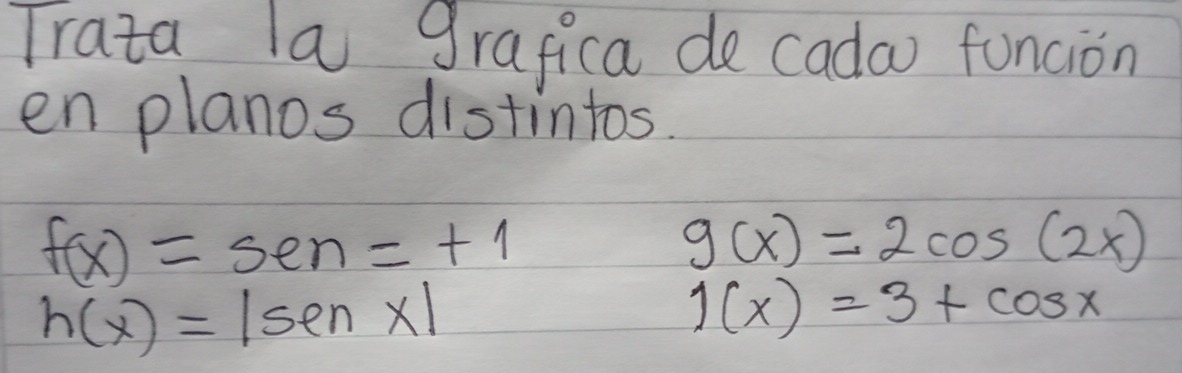 Traza la grafica de cada función
en planos distintos.
f(x) = sen = + 1 g(x) = 2 cos (2x)
h(x) = |sen x| J(x) = 3 + cosx